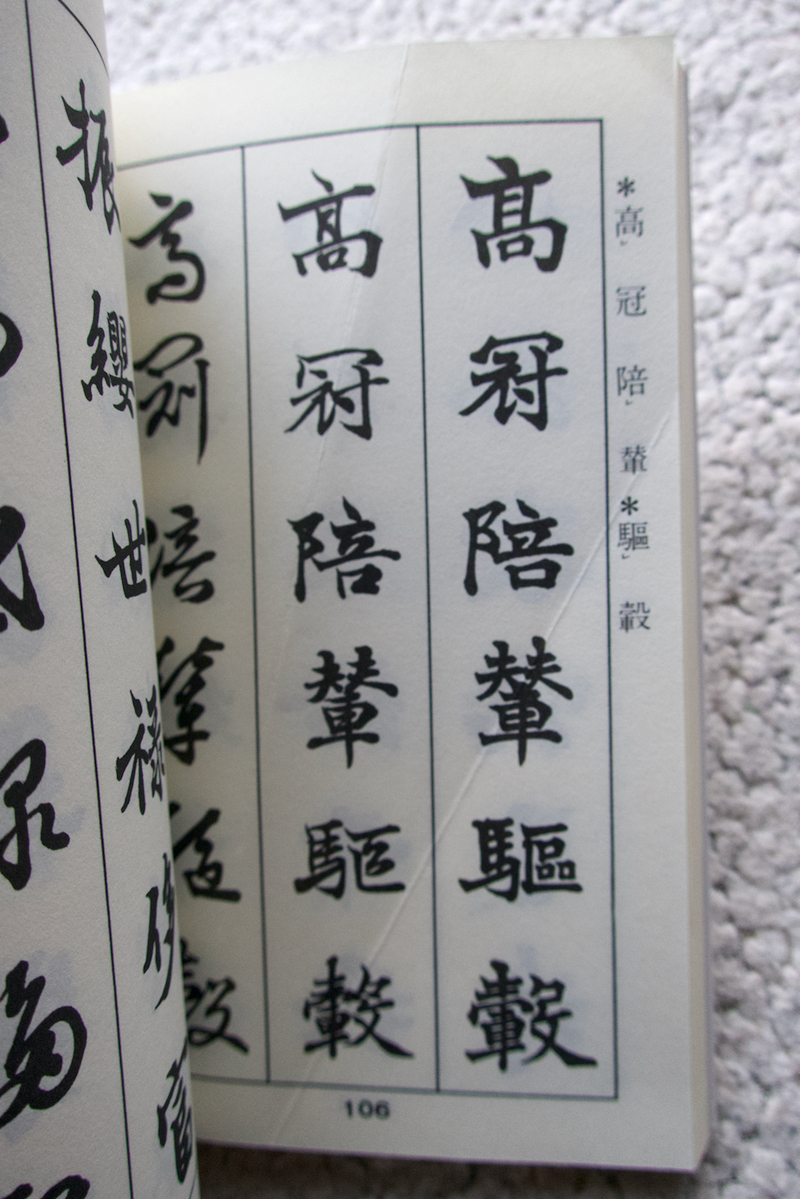 *高レ 冠 陪レ 輦 *驅レ 轂
高冠陪輦驅轂
高冠陪輦驅轂
高冠陪輦驅轂
106
振纓世祿侈富